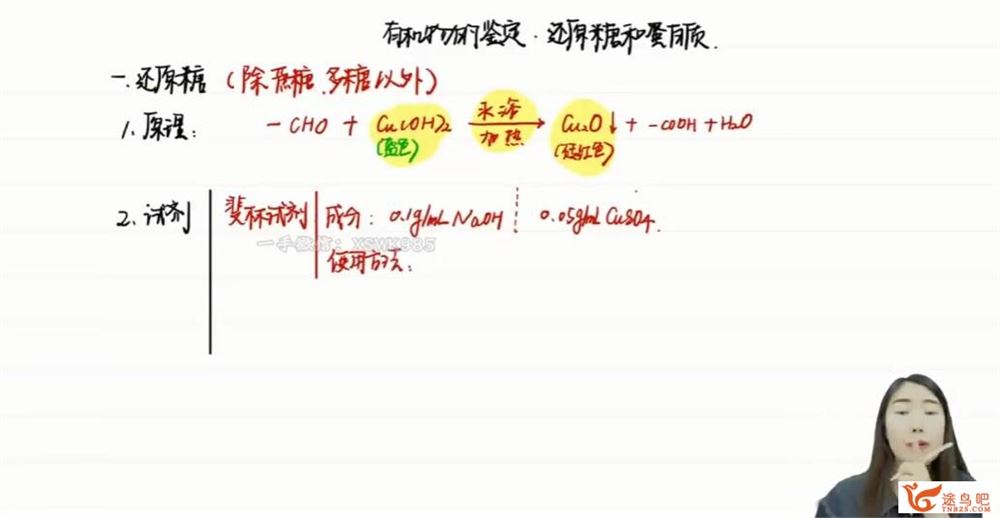 有机物的鉴定·还原糖和蛋白质.
一.还原糖（除蔗糖、多糖以外）
1.原理： -CHO + Cu(OH)2 水浴 加热 → Cu2O↓ + -COOH + H2O
(蓝色) (砖红色)
2.试剂 斐林试剂 成分：0.1g/mL NaOH 0.05g/mL CuSO4.
一手微信：XSWK985
使用方法：
途鸟吧
TNBZS.COM